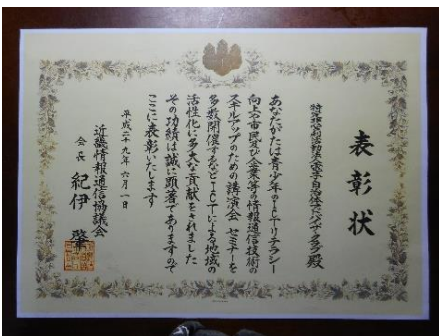 表彰状
特定非営利活動法人電子自治体アドバイザークラブ殿
あなたがたは青少年のICTリテラシー
向上や市民及び企業等の情報通信技術の
スキルアップのための講演会 セミナーを
多数開催するなどICTによる地域の
活性化に多大な貢献をされました
その功績は誠に顕著でありますので
ここに表彰いたします
平成二十九年六月一日
近畿情報通信協議会
会長 紀伊 肇